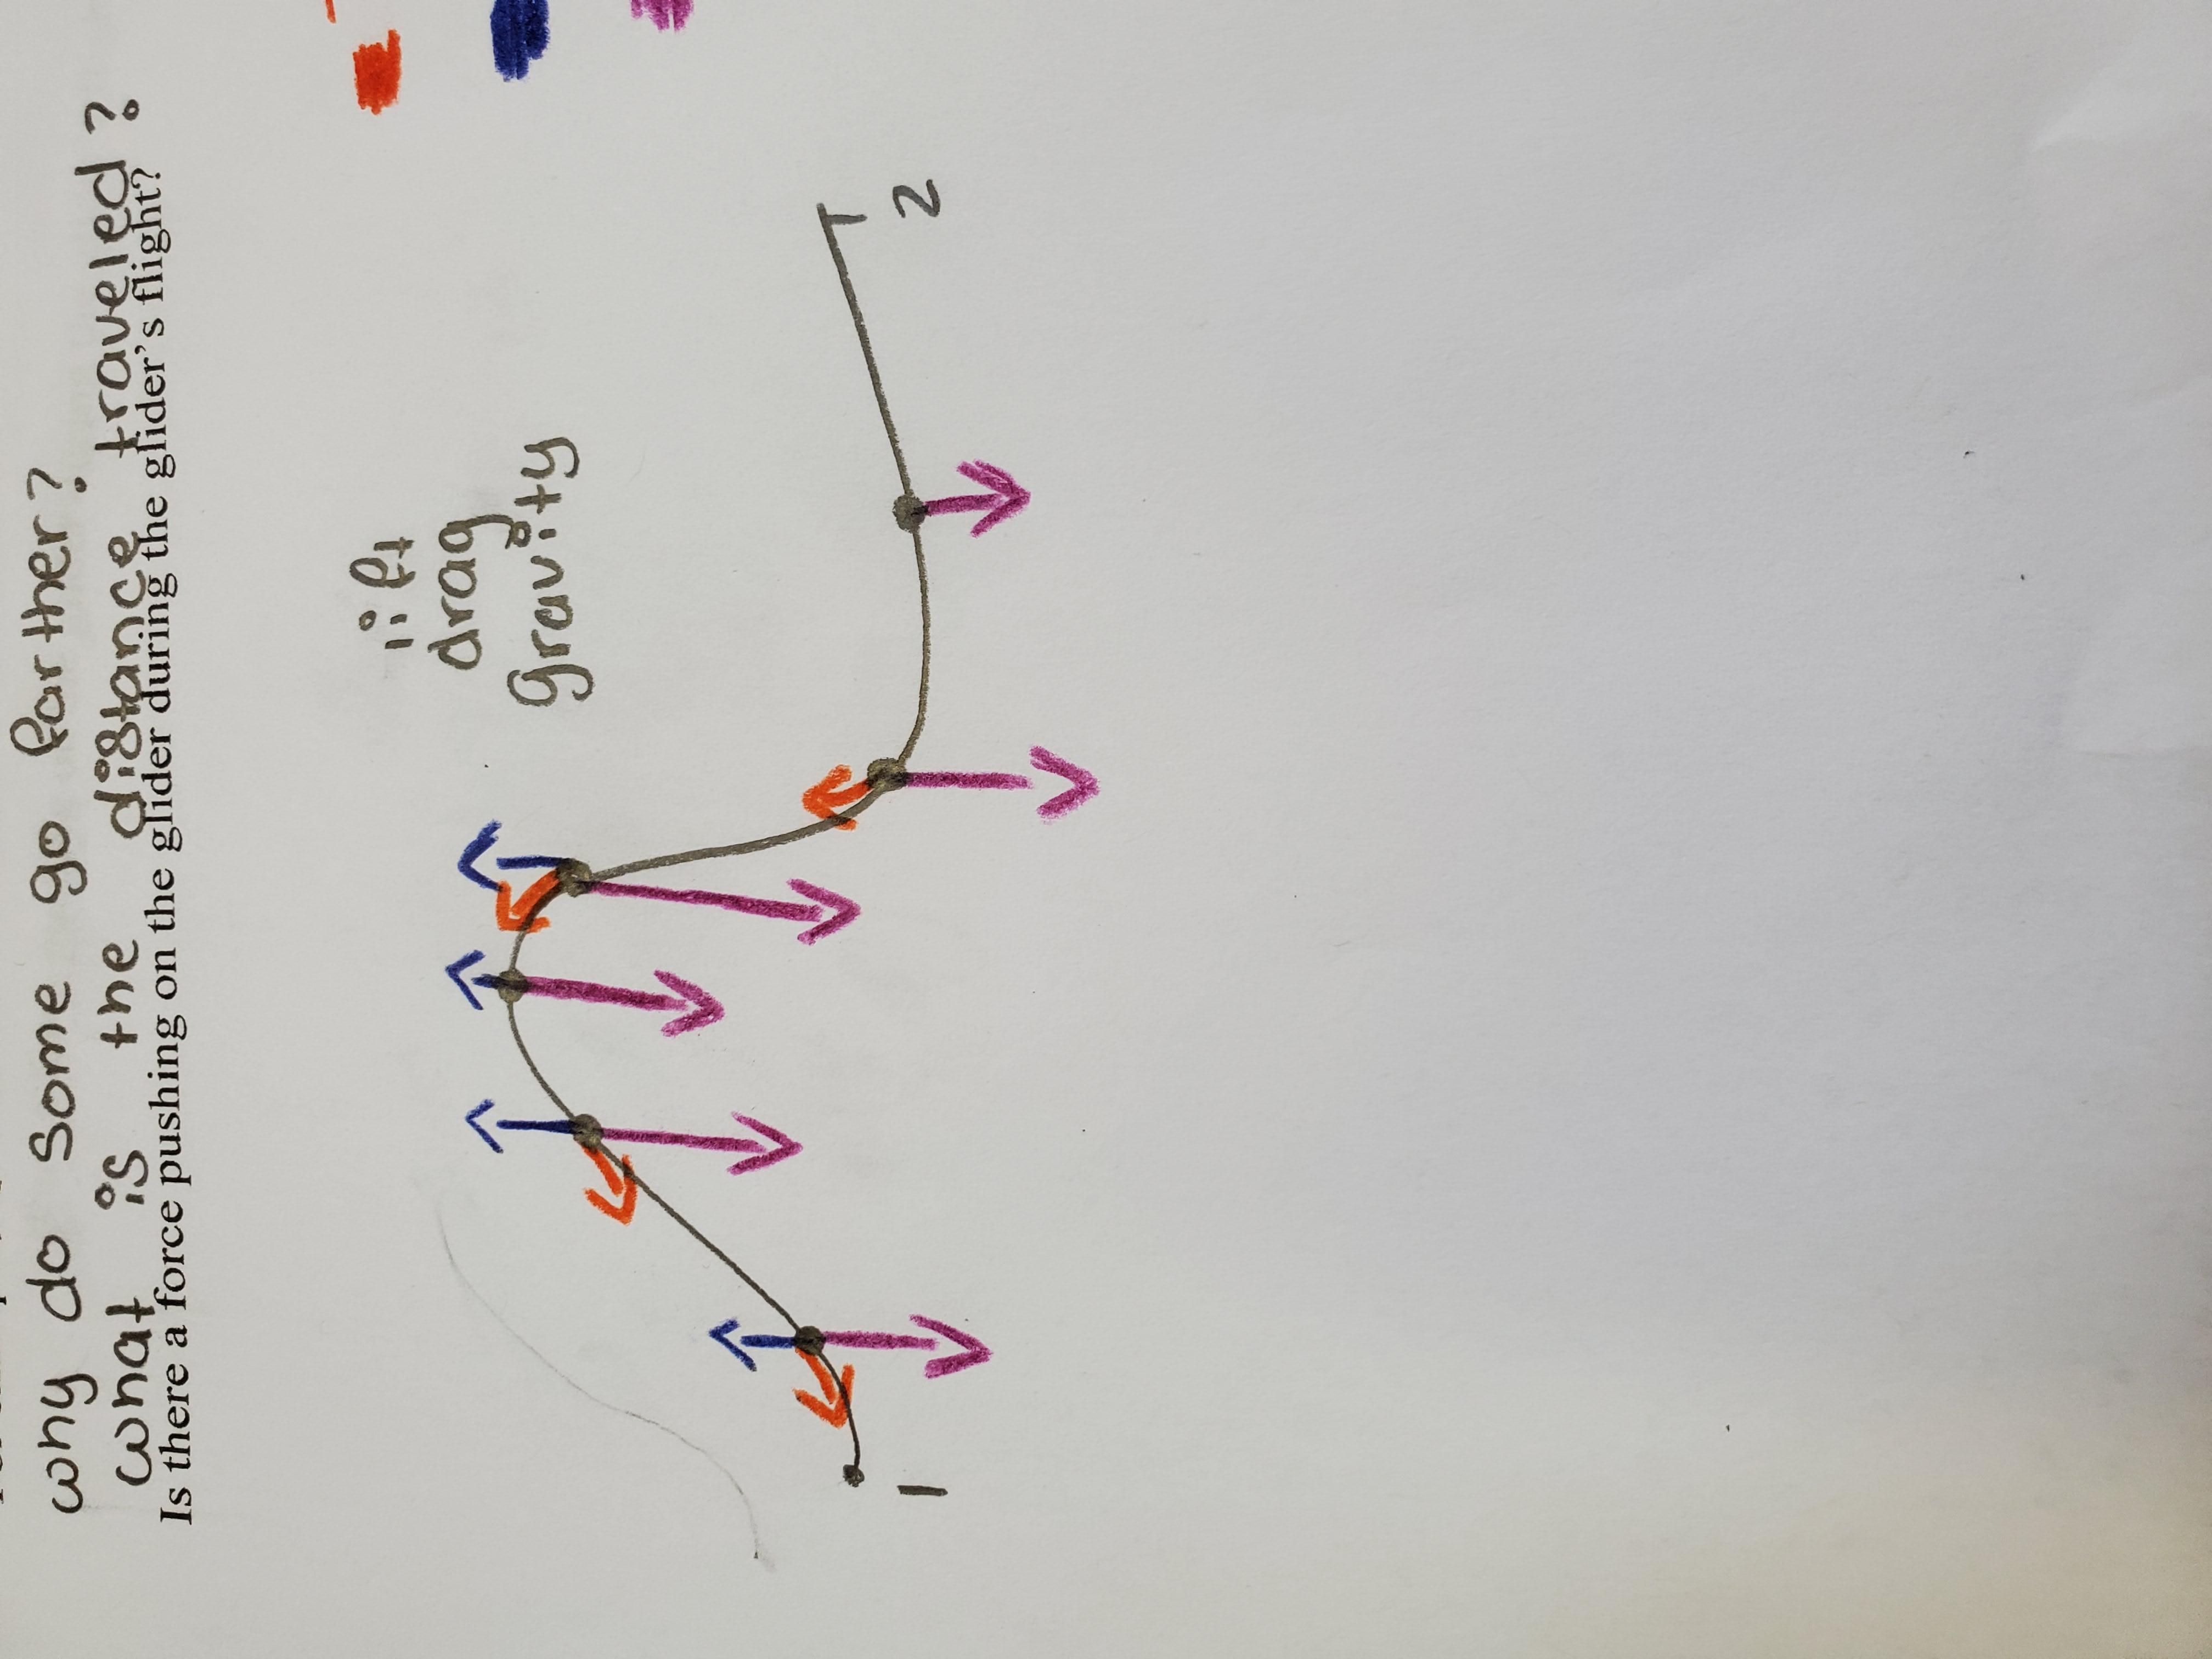 why do some go farther?
what is the distance traveled?
Is there a force pushing on the glider during the glider's flight?
lift
drag
gravity
1
2